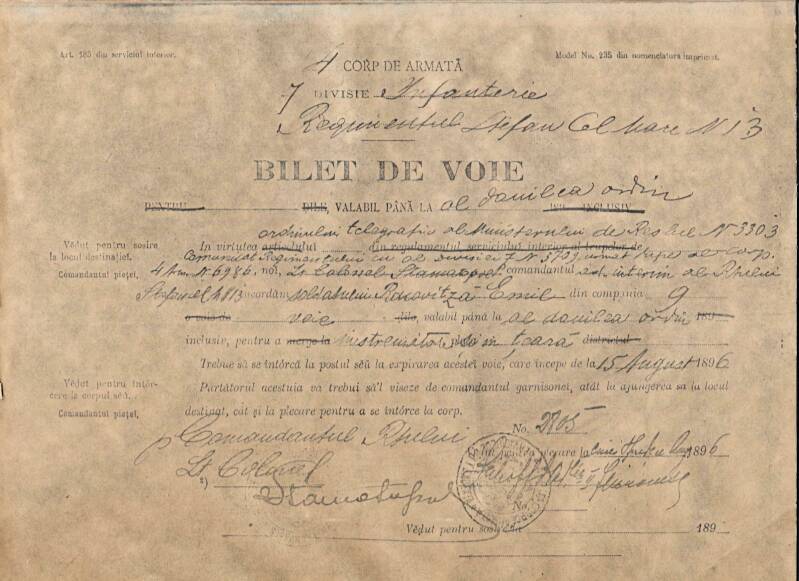 Art. 185 din serviciul interior.
Model No. 235 din nomenclatura imprimat.
4 CORP DE ARMATĂ
7 DIVISIE Infanterie
Regimentul Stefan Cel Mare N 13
BILET DE VOIE
PENTRU ZILE, VALABIL PÂNĂ LA al douilea ordin INCLUSIV
ordinului telegrafic al Ministerului de Resbel N 3303
Vĕdut pentru sosire
la locul destinației.
Comandantul pieței,
In virtutea articolului din regulamentul serviciului interior al trupelor de
Comunicat Regimentului cu al divisiei 7 N 3703, Corp.
4 Arm. N 6986 noi, Lt Colonel Stamatopol comandantul ad. interim al Rgtului
Stefan cel M. 13 acordăm soldatului Racovitză Emil din compania 9
voie zile, valabil până la al douilea ordin 189
inclusiv, pentru a merge în streinătate și în țeară districtul
Trebue să se întórcă la postul sĕŭ la expirarea acestei voie, care începe de la 15 August 1896
Vĕdut pentru întór-
cere la corpul sĕŭ.
Comandantul pieței,
Purtătorul acestuia va trebui să'l viseze de comandantul garnisonei, atât la ajungerea sa la locul
destinat, cât și la plecare pentru a se întórce la corp.
No. 2705
Comandantul Rgtului
pentru plecare la 1896
Lt Colonel
Stamatopol
No.
Vĕdut pentru sosire la 189